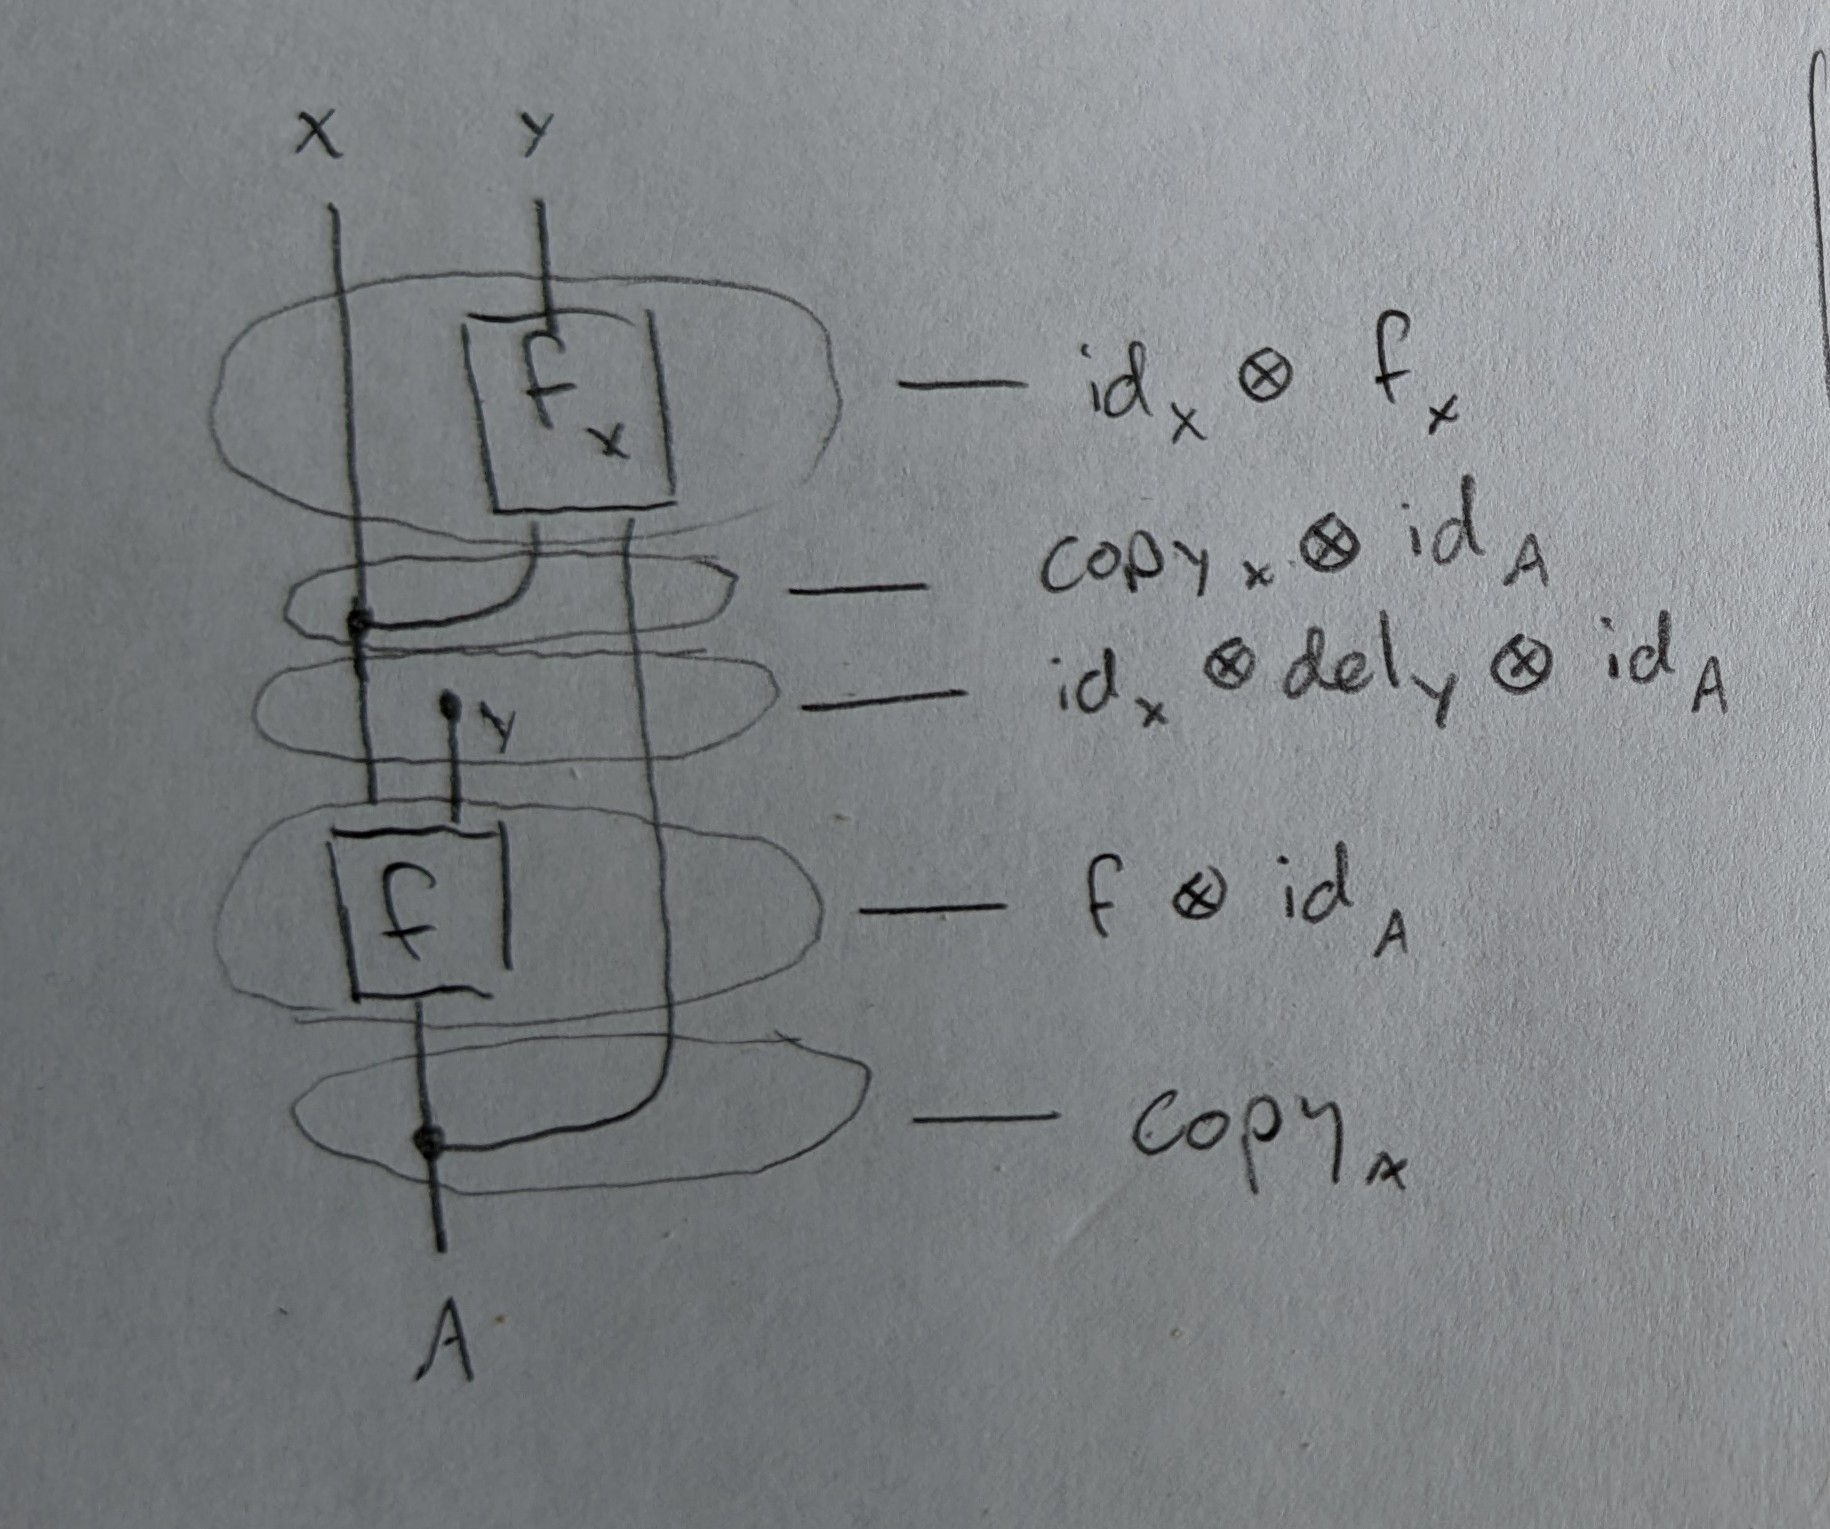 X Y
f
x
— id_x ⊗ f_x
— copy_x ⊗ id_A
y
— id_x ⊗ del_y ⊗ id_A
f
— f ⊗ id_A
— copy_x
A